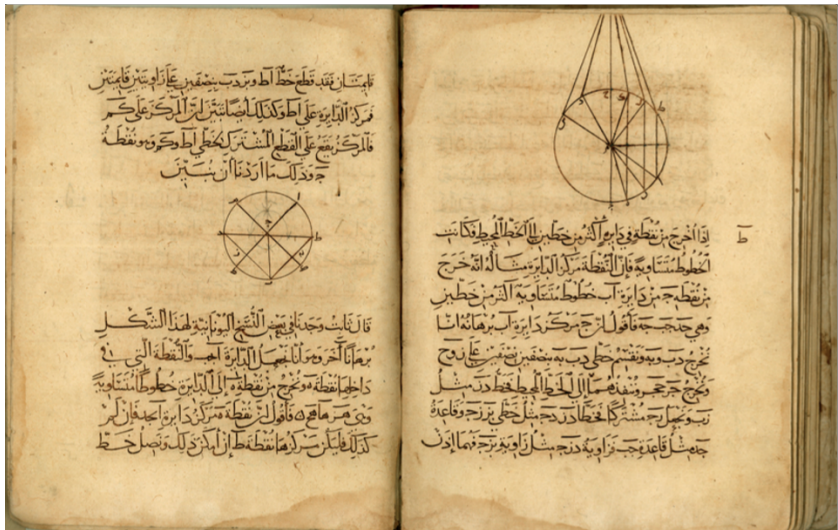 ط
اذا اخرج من نقطة في دايرة اكثر من خطين الى الخط المحيط فكانت
الخطوط متساوية فان النقطة مركز الدايرة مثاله انه خرج
من نقطة ج من دايرة اب خطوط متساوية اكثر من خطين
وهي جد جب جه فاقول ان ج مركز دايرة اب برهانه انا
نخرج دب وبه ونقسم خطي دب به بنصفين نصفين على ز وح
ونخرج جز جح وننفذهما الى الخط المحيط فخط دز مثل
زب ونجعل زج مشتركا فخطا دز زج مثل خطي بز زج وقاعدة
جد مثل قاعدة جب فزاوية دزج مثل زاوية بزج فهما اذن
قايمتان فقد قطع خط اط وتر دب بنصفين على زاويتين قايمتين
فمركز الدايرة على اط وكذلك ايضا نبين ان المركز على كم
فالمركز يقع على القطع المشترك لخطي اط وكم وهو نقطة
ج وذلك ما اردنا ان نبين
قال ثابت وجدنا في بعض النسخ اليونانية لهذا الشكل
برهانا آخر وهو انا نجعل الدايرة والنقطة التي في
داخلها نقطة ه ونخرج من نقطة ه الى الدايرة خطوطا متساوية
وهي فاقول ان نقطة ه مركز دايرة فان لم
كذلك فليكن مركزها نقطة ط ان امكن ذلك ونصل خط